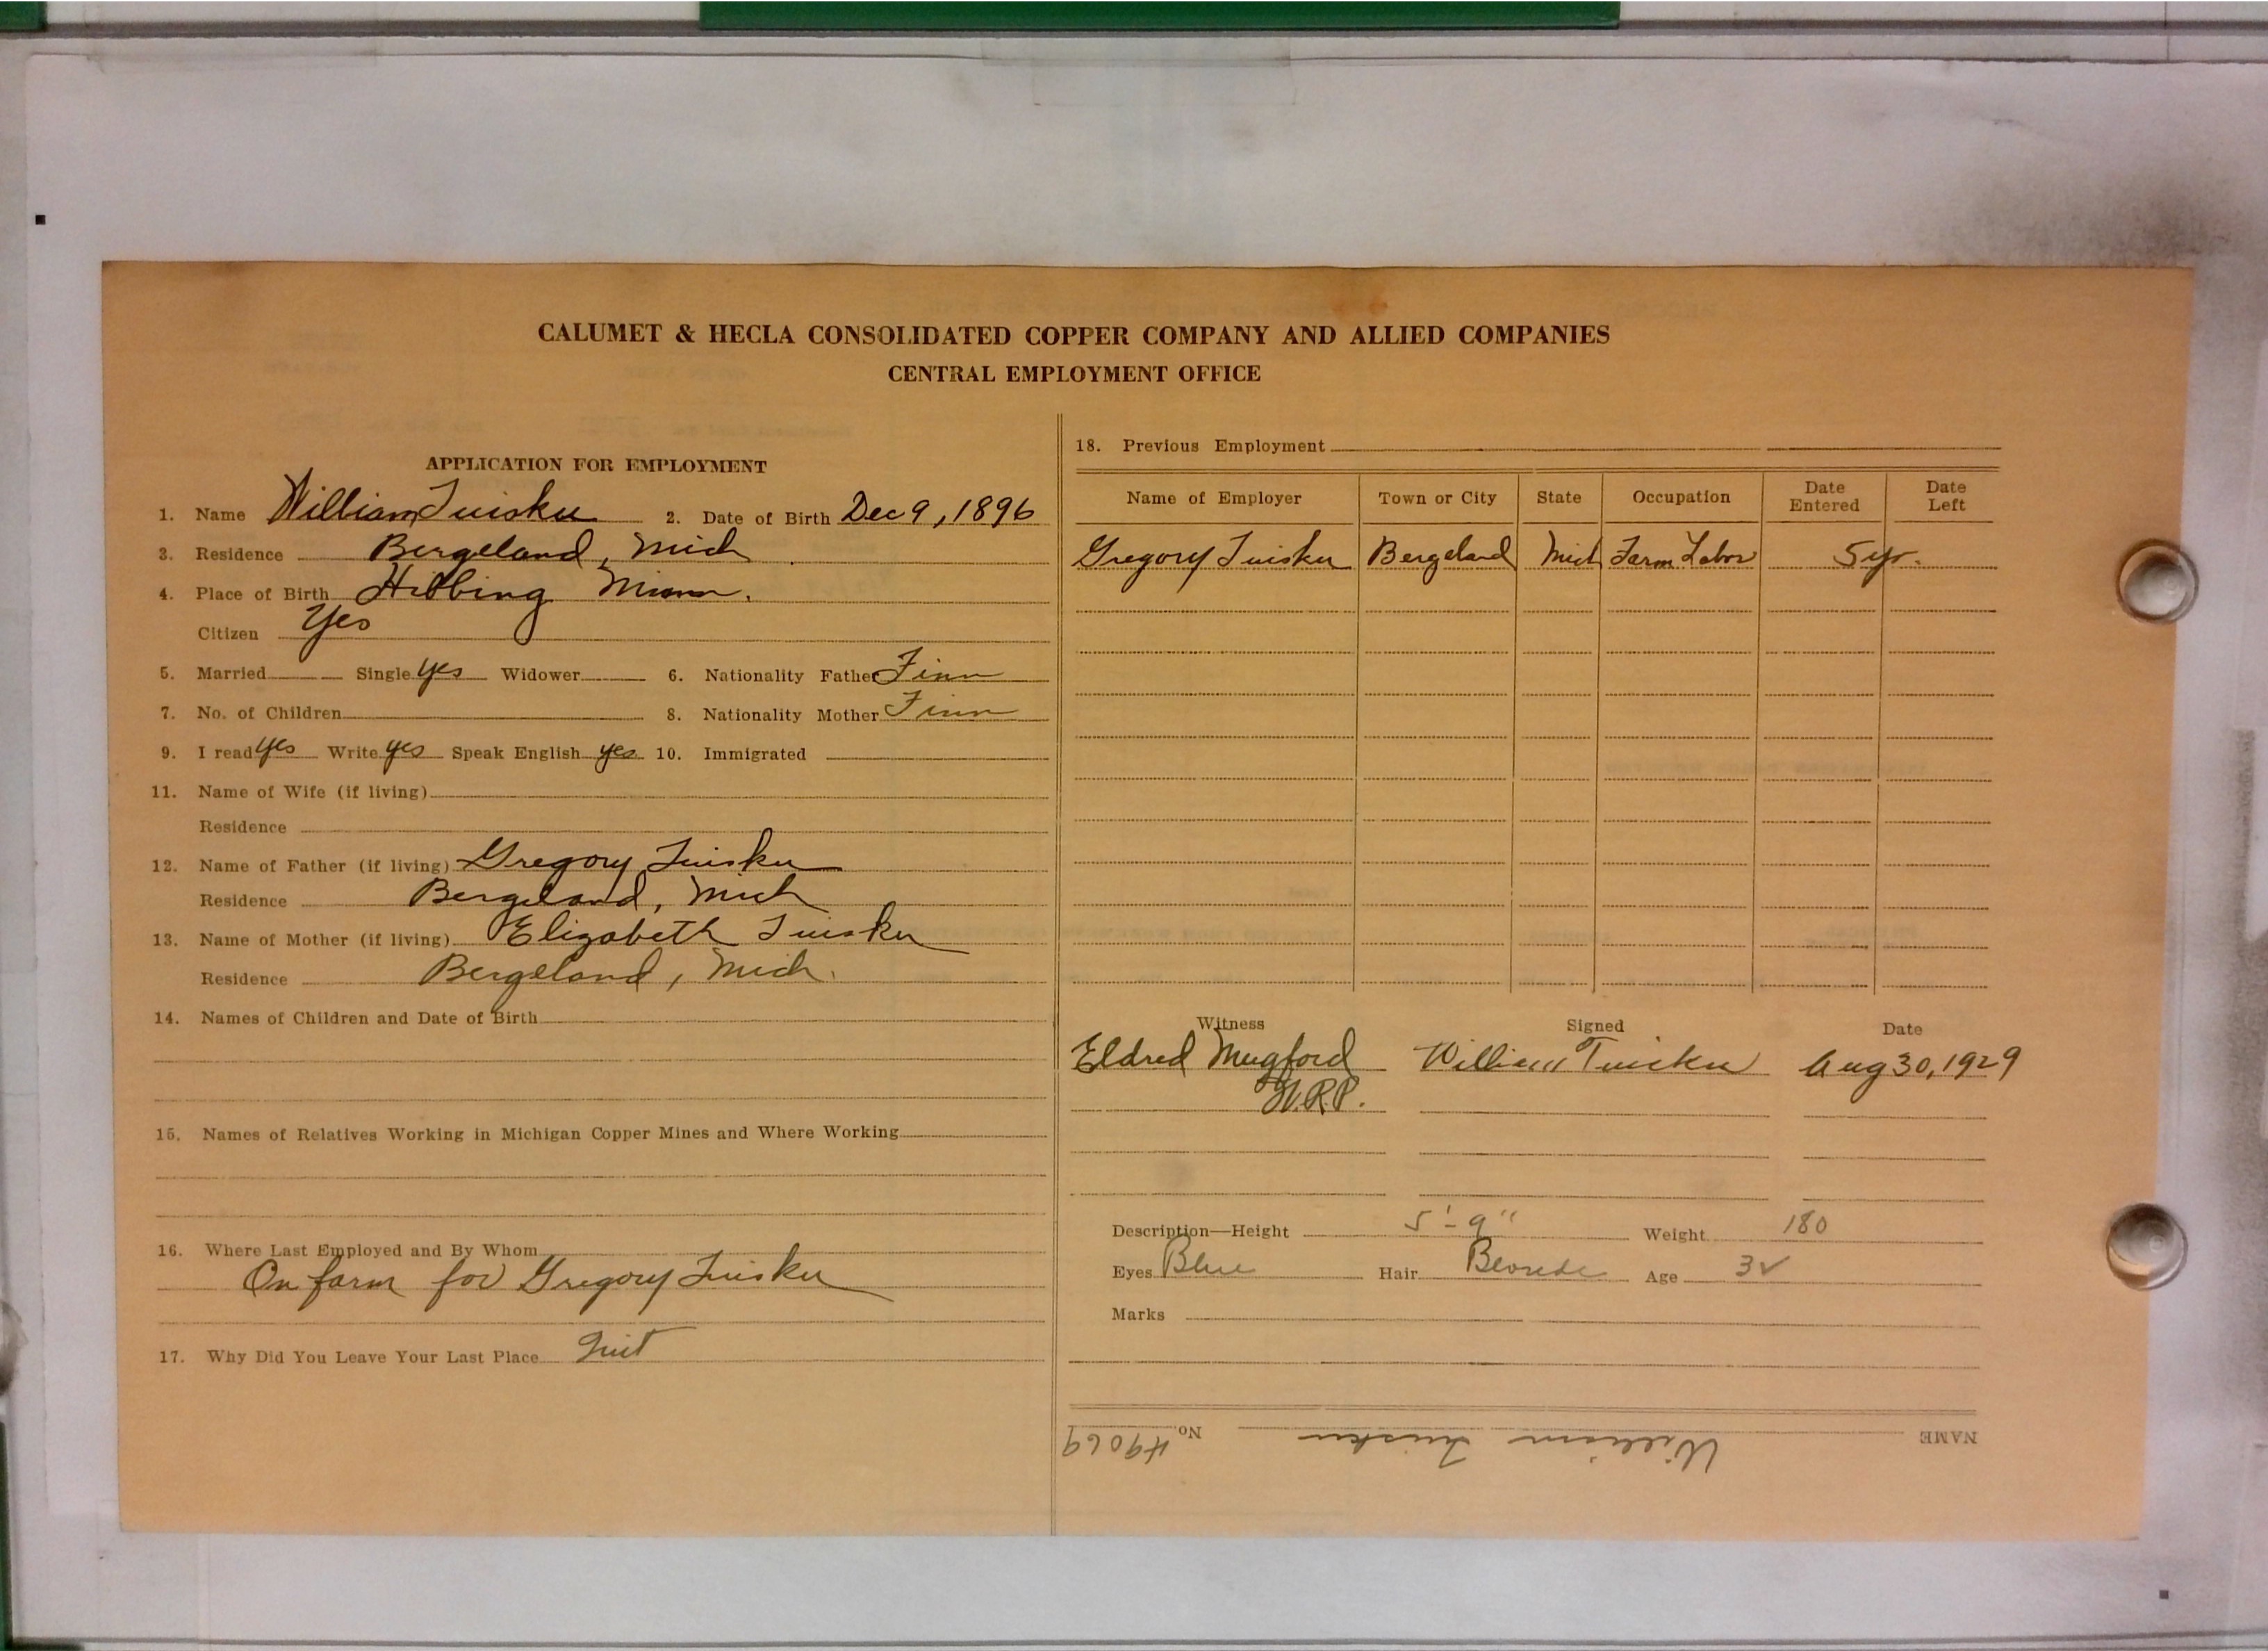 CALUMET & HECLA CONSOLIDATED COPPER COMPANY AND ALLIED COMPANIES
CENTRAL EMPLOYMENT OFFICE
APPLICATION FOR EMPLOYMENT
1. Name William Tuisku 2. Date of Birth Dec 9, 1896
3. Residence Bergeland, Mich
4. Place of Birth Hibbing Minn.
Citizen Yes
5. Married Single yes Widower 6. Nationality Father Finn
7. No. of Children 8. Nationality Mother Finn
9. I read yes Write yes Speak English yes 10. Immigrated
11. Name of Wife (if living)
Residence
12. Name of Father (if living) Gregory Tuisku
Residence Bergeland, Mich
13. Name of Mother (if living) Elizabeth Tuisku
Residence Bergeland, Mich.
14. Names of Children and Date of Birth
15. Names of Relatives Working in Michigan Copper Mines and Where Working
16. Where Last Employed and By Whom
On farm for Gregory Tuisku
17. Why Did You Leave Your Last Place Quit
18. Previous Employment
Name of Employer Town or City State Occupation Date Entered Date Left
Gregory Tuisku Bergeland Mich Farm Labor 5 yr.
Witness Signed Date
Eldred Mugford William Tuisku Aug 30, 1929
H.R.P.
Description—Height 5'-9" Weight 180
Eyes Blue Hair Blonde Age 32
Marks
NAME William Tuisku No. 49069